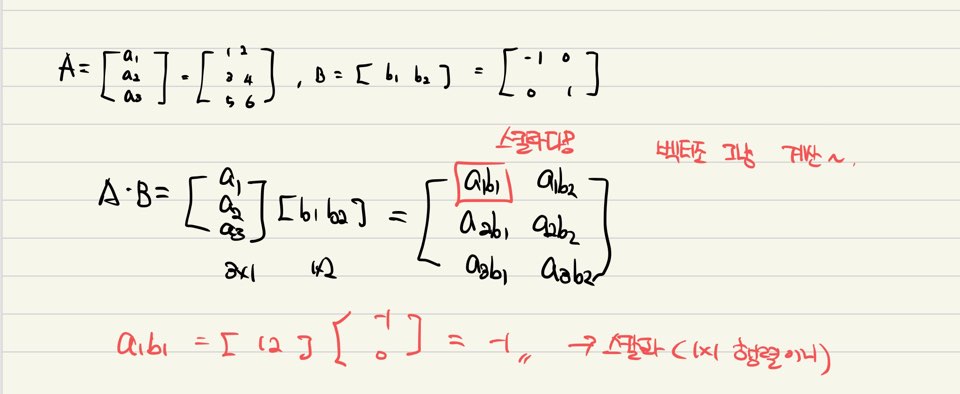 A = [a₁ a₂ a₃] = [1 2 3 4 5 6], B = [b₁ b₂] = [-1 0 0 1]
스칼라다옹 벡터로 그냥 계산~.
A·B = [a₁ a₂ a₃] [b₁ b₂] = [a₁b₁ a₁b₂ a₂b₁ a₂b₂ a₃b₁ a₃b₂]
3×1 1×2
a₁b₁ = [1 2] [-1 0] = -1〃 → 스칼라 (1×1 행렬이니)